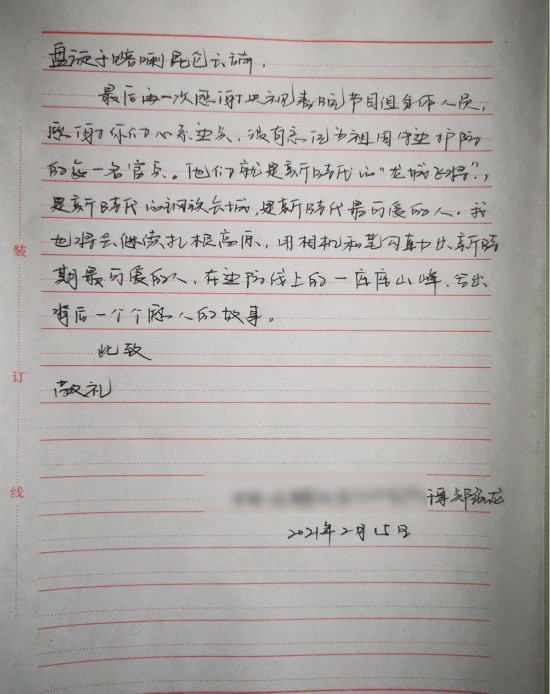 盘旋于喀喇昆仑云端。
最后再一次感谢央视春晚节目组全体人员,
感谢你们心系边关,没有忘记为祖国守边护防
的每一名官兵。他们就是新时代的“龙城飞将”,
是新时代的钢铁长城,是新时代最可爱的人。我
也将会继续扎根高原,用相机和笔勾勒出新时
期最可爱的人,在边防线上的一座座山峰,写出
背后一个个感人的故事。
此致
敬礼
装
订
线
2021年2月15日